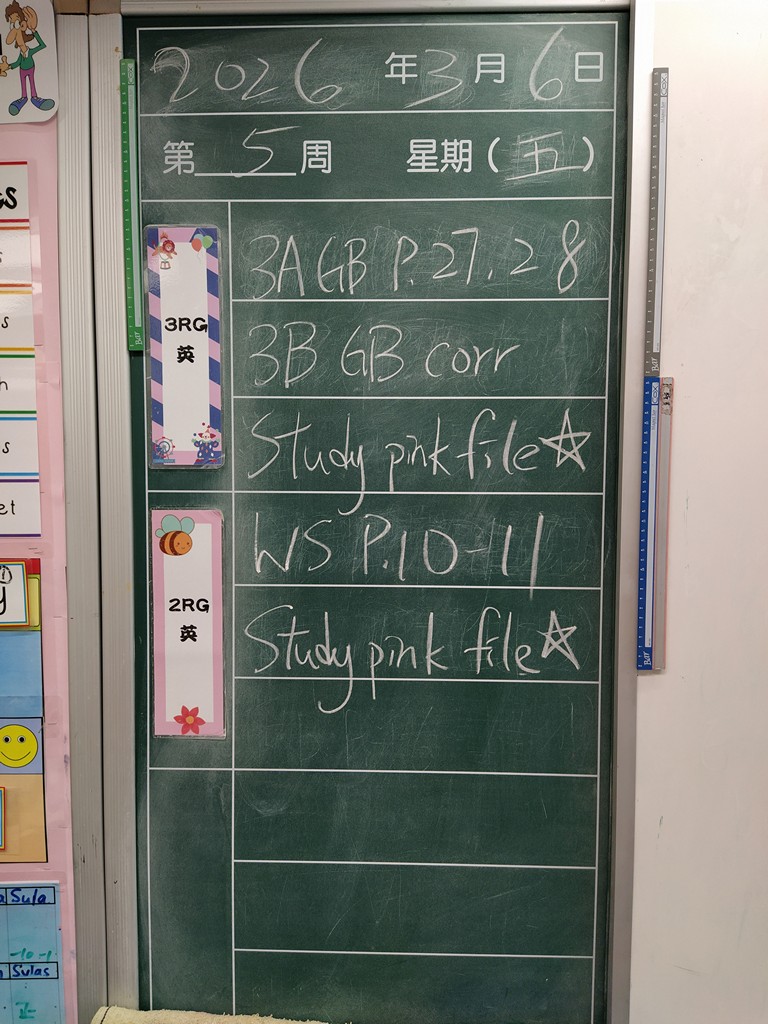 2026 年 3 月 6 日
第 5 周 星期(五)
3RG
英
3A GB P.27.28
3B GB corr
Study pink file☆
2RG
英
WS P.10-11
Study pink file☆
s
s
h
s
et
y
Sula
-10-1
Sulas